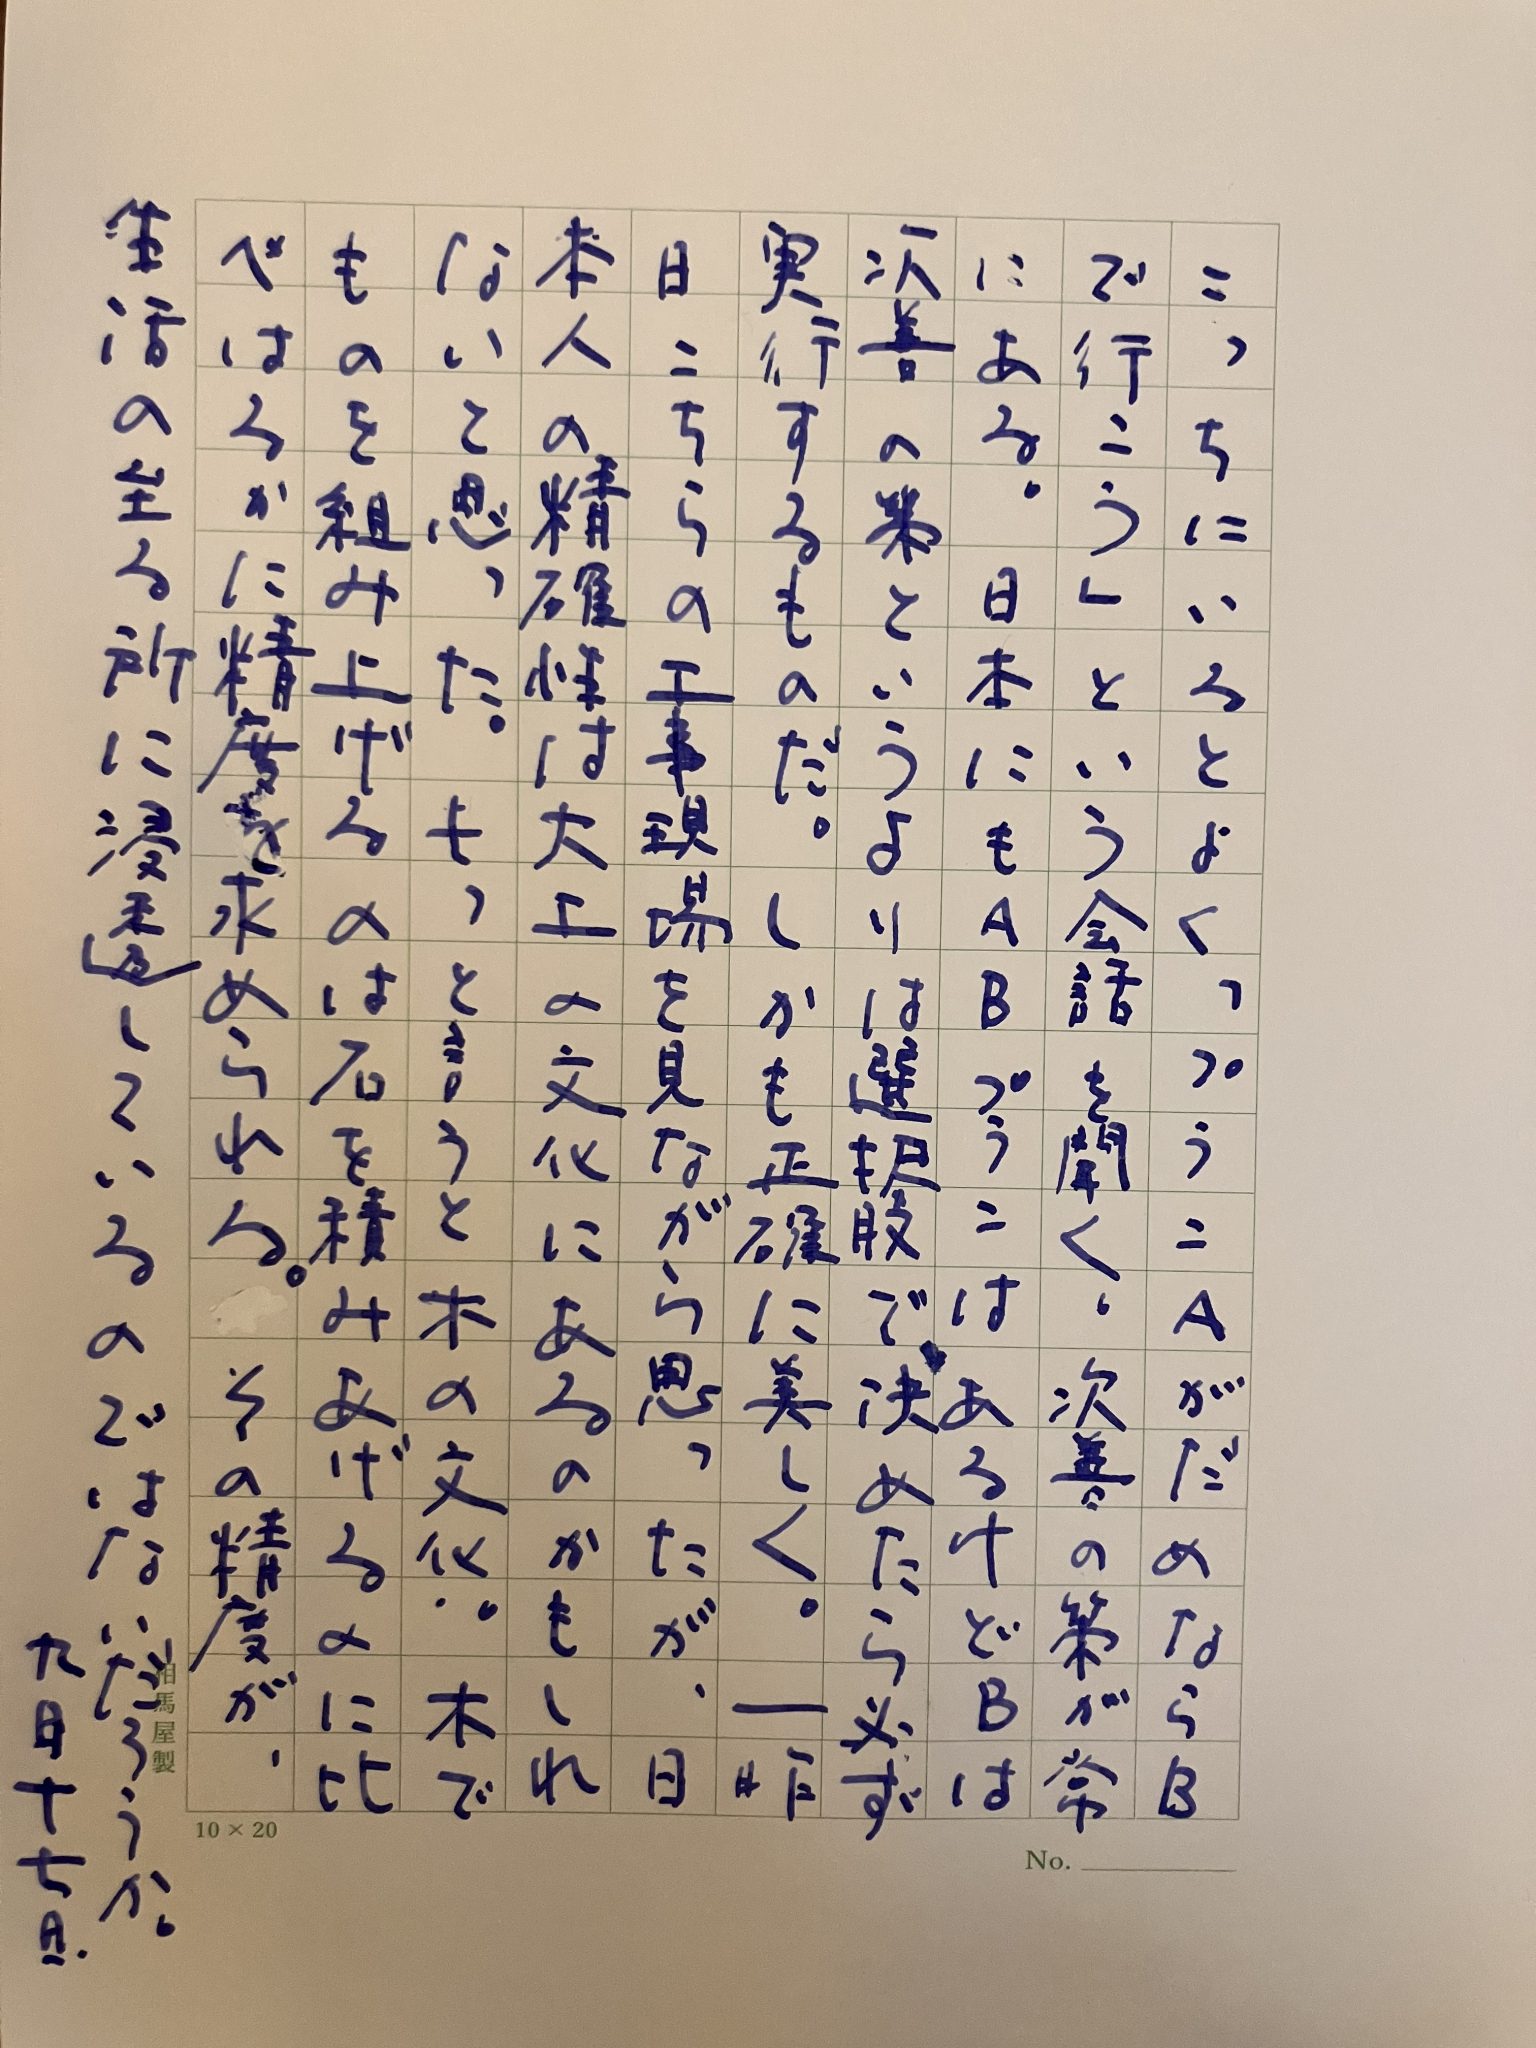 こっちにいるとよくっプうこAがだめならB
で行こう」という会話を聞く、次善の策が常
にある。 日本にもABプうこはあるけどBは
次善の策というよりは選択肢で、決めたら必ず
実行するものだ。しかも正確に美しく。一昨
日こちらの工事現場を見ながら思ったが、日
本人の精確性は大工の文化にあるのかもしれ
ないと思った。もっと言うと木の文化。木で
ものを組み上げるのは石を積みあげるのに比
べはるかに精度を求められる。その精度が、
生活の至る所に浸透しているのではないだろうか。
九月十七日.
相馬屋製
10 × 20
No.